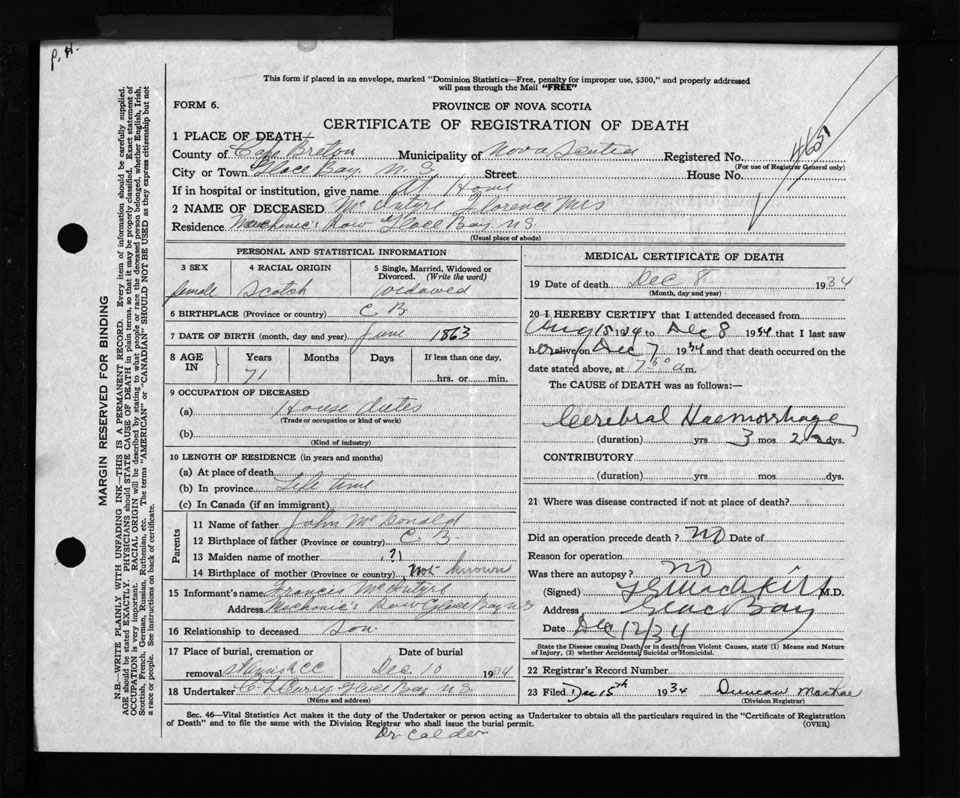 P. H.
This form if placed in an envelope, marked "Dominion Statistics—Free, penalty for improper use, $300," and properly addressed
will pass through the Mail "FREE"
FORM 6.
PROVINCE OF NOVA SCOTIA
CERTIFICATE OF REGISTRATION OF DEATH
1 PLACE OF DEATH—
County of Cape Breton Municipality of Nova Scotia Registered No. 4651
(For use of Registrar General only)
City or Town Glace Bay N. S. Street House No.
If in hospital or institution, give name At Home
2 NAME OF DECEASED Mc Intyre Florence Mrs
Residence Mechanic's Row Glace Bay NS
(Usual place of abode)
PERSONAL AND STATISTICAL INFORMATION
3 SEX
female
4 RACIAL ORIGIN
Scotch
5 Single, Married, Widowed or
Divorced. (Write the word)
widowed
6 BIRTHPLACE (Province or country) C B
7 DATE OF BIRTH (month, day and year) June 1863
8 AGE
IN
Years
71
Months
Days
If less than one day,
hrs. or min.
9 OCCUPATION OF DECEASED
(a) House duties
(Trade or occupation or kind of work)
(b)
(Kind of industry)
10 LENGTH OF RESIDENCE (in years and months)
(a) At place of death
(b) In province Life time
(c) In Canada (if an immigrant)
Parents
11 Name of father John McDonald
12 Birthplace of father (Province or country) C. B.
13 Maiden name of mother ?
14 Birthplace of mother (Province or country) not known
15 Informant's name Francis McIntyre
Address Mechanic's Row Glace Bay NS
16 Relationship to deceased son
17 Place of burial, cremation or
removal
Date of burial
Dec 10 1934
18 Undertaker Glace Bay NS
(Name and address)
MEDICAL CERTIFICATE OF DEATH
19 Date of death Dec 8 1934
(Month, day and year)
20 I HEREBY CERTIFY that I attended deceased from
Aug 15 1934 to Dec 8 1934 that I last saw
her alive on Dec 7 1934 and that death occurred on the
date stated above, at 7 50 a m.
The CAUSE of DEATH was as follows:—
Cerebral Haemorrhage
(duration) yrs 3 mos dys.
CONTRIBUTORY
(duration) yrs mos dys.
21 Where was disease contracted if not at place of death?
Did an operation precede death? no Date of
Reason for operation
Was there an autopsy? no
(Signed) M.D.
Address Glace Bay
Date Dec 12/34
State the Disease causing Death, or in death from Violent Causes, state (1) Means and Nature
of Injury, (2) whether Accidental, Suicidal or Homicidal.
22 Registrar's Record Number
23 Filed Dec 15th 1934 Duncan MacRae
(Division Registrar)
Sec. 46—Vital Statistics Act makes it the duty of the Undertaker or person acting as Undertaker to obtain all the particulars required in the "Certificate of Registration
of Death" and to file the same with the Division Registrar who shall issue the burial permit.
(OVER)
Dr Calder
MARGIN RESERVED FOR BINDING
N.B.—WRITE PLAINLY WITH UNFADING INK—THIS IS A PERMANENT RECORD. Every item of information should be carefully supplied.
AGE should be stated EXACTLY. PHYSICIANS should STATE CAUSE OF DEATH in plain terms, so that it may be properly classified. Exact statement of
OCCUPATION is very important. RACIAL ORIGIN will be described by stating to what people or race the deceased person belonged, whether English, Irish,
Scottish, French, German, Russian, Ruthenian, etc. The terms "AMERICAN" or "CANADIAN" SHOULD NOT BE USED as they express citizenship but not
a race or people. See instructions on back of certificate.